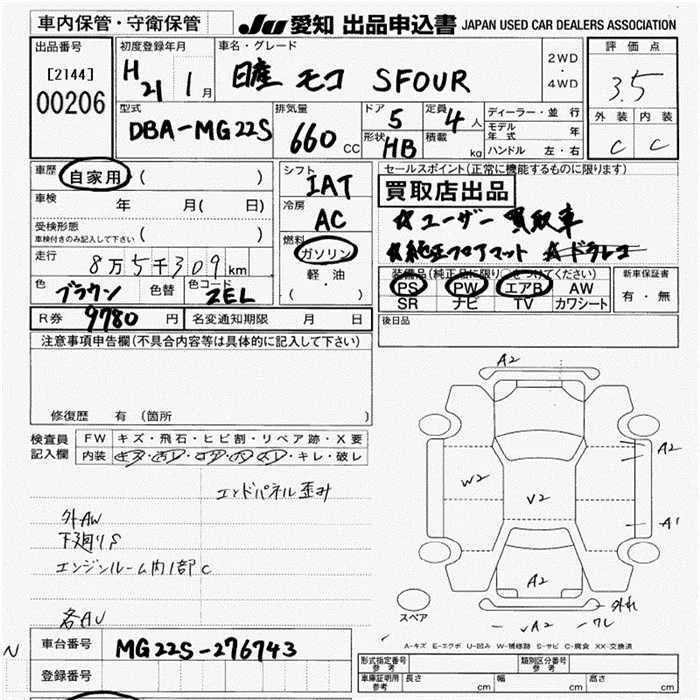 車内保管・守衛保管 JU 愛知 出品申込書 JAPAN USED CAR DEALERS ASSOCIATION
出品番号 初度登録年月 車名・グレード 2WD・4WD 評価点
[2144] 00206 H21 1月 日産 モコ SFOUR 3.5
型式 排気量 ドア 定員 ディーラー・並行 外装 内装
DBA-MG22S 660CC 5 4人 モデル年式 年 C C
形状 HB 積載 kg ハンドル 左・右
車歴 自家用 ( ) シフト IAT セールスポイント(正常に機能するものに限ります)
車検 年 月( 日) 冷房 AC 買取店出品
受検形態 車検付きのみ記入して下さい ( ) ☆ユーザー買取車
燃料 ガソリン ☆純正フロアマット ☆ドラレコ
走行 8万5千309km 軽油 ・( ) 装備品(純正品に限り○をつけてください) 新車保証書
色 ブラウン 色替 色コード ZEL PS PW エアB AW 有・無
SR ナビ TV カワシート
R券 9780円 名変通知期限 月 日 後日品
注意事項申告欄(不具合内容等は具体的に記入して下さい)
修復歴 有(箇所 )
検査員記入欄 FW キズ・飛石・ヒビ割・リペア跡・X要
内装 キズ・汚レ・コゲ・穴・スレ・キレ・破レ
エンドパネル歪み
外AW
下廻りS
エンジンルーム内1部C
各AU
A2
A2
W2
V2
A1
A2
外れ
スペア
A2 ワレ
A-キズ E-エクボ U-凹み W-補修跡 S-サビ C-腐食 XX-交換済
N 車台番号 MG22S-276743
登録番号
形式指定番号 参考 類別区分番号 参考
車庫証明用 参考 長さ cm 幅 cm 高さ cm